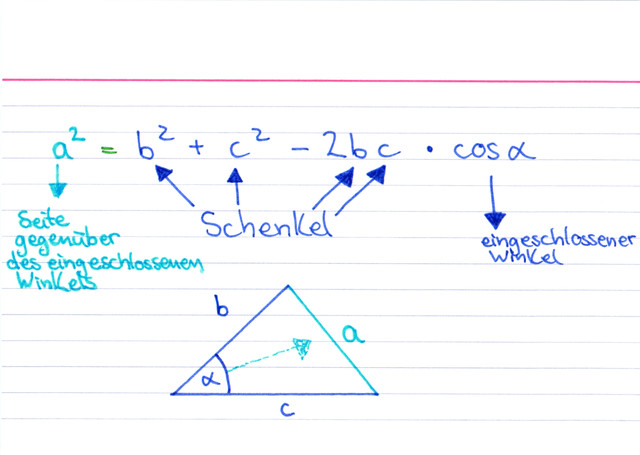 a² = b² + c² - 2bc · cos α
Schenkel
Seite
gegenüber
des eingeschlossenen
Winkels
eingeschlossener
Winkel
b
a
α
c